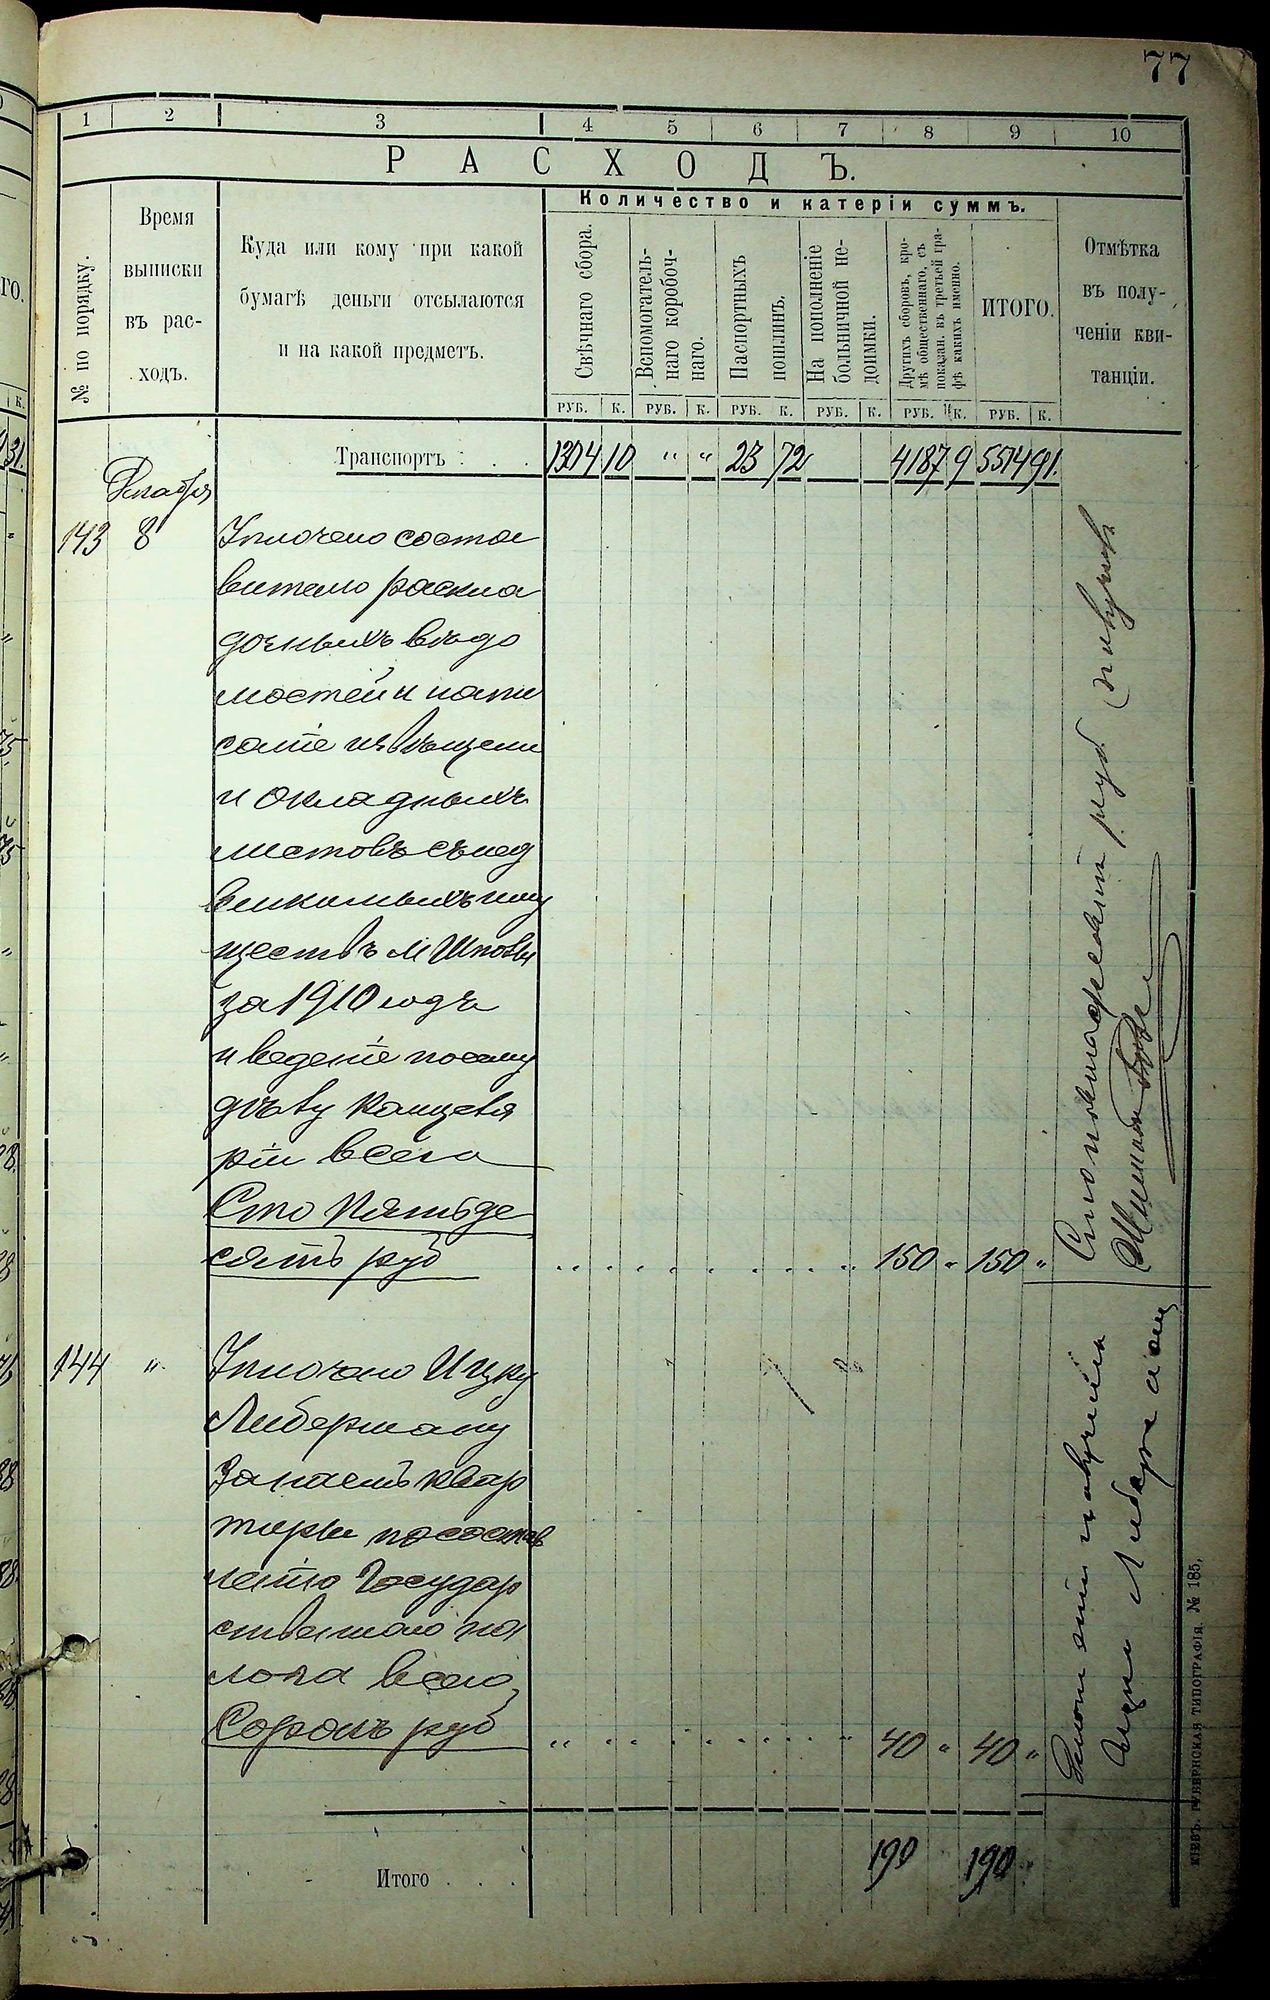 77
1 2 3 4 5 6 7 8 9 10
РАСХОДЪ.
№ по порядку.
Время
выписки
въ рас-
ходъ.
Куда или кому при какой
бумагѣ деньги отсылаются
и на какой предметъ.
Количество и катеріи суммъ.
Свѣчнаго сбора.
Вспомогатель-
наго коробоч-
наго.
Паспортныхъ
пошлинъ.
На пополненіе
больничной не-
доимки.
Другихъ сборовъ, кро-
мѣ общественнаго, съ
показан. въ третьей гра-
фѣ какихъ именно.
ИТОГО.
Отмѣтка
въ полу-
ченіи кви-
танціи.
РУБ. К. РУБ. К. РУБ. К. РУБ. К. РУБ. К. РУБ. К.
Транспортъ . . . 1304 10 " " 23 72 4187 9 5514 91.
Декабря
143 8 Уплочено соста
вителю раскла
дочныхъ вѣдо
мостей и напи
саніе извѣщени
и окладныхъ
листовъ съ нед
вижимыхъ иму
ществъ м Шполы
за 1910 годъ
и веденіе по сему
дѣлу канцеля
ріи всего
Сто Пятьде
сятъ руб 150 " 150 "
Сто пятьдесятъ руб получилъ
144 " Уплочено Ицку
Либерману
За наемъ квар
тиры по состав
ленію Государ
ственнаго на
лога всего
Сорокъ руб 40 " 40 "
получилъ
Ицко Либерман
Итого . . . 190 190
КІЕВЪ. ГУБЕРНСКАЯ ТИПОГРАФІЯ. № 185,